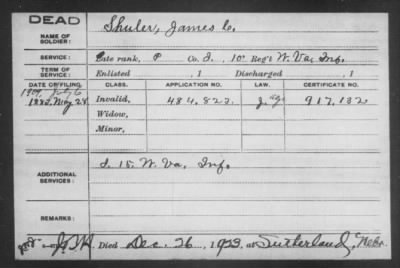 DEAD
NAME OF SOLDIER: Shuler, James C.
SERVICE: Late rank, P Co. I, 10" Reg't W. Va. Inf.
TERM OF SERVICE: Enlisted , 1 Discharged , 1
DATE OF FILING. CLASS. APPLICATION NO. LAW. CERTIFICATE NO.
July 6
1882, May 28 Invalid, 484.823. 917,132
Widow,
Minor,
ADDITIONAL SERVICES: I. 15. W. Va. Inf.
REMARKS:
Died Dec. 26, 1923, at Sutherland, Nebr.